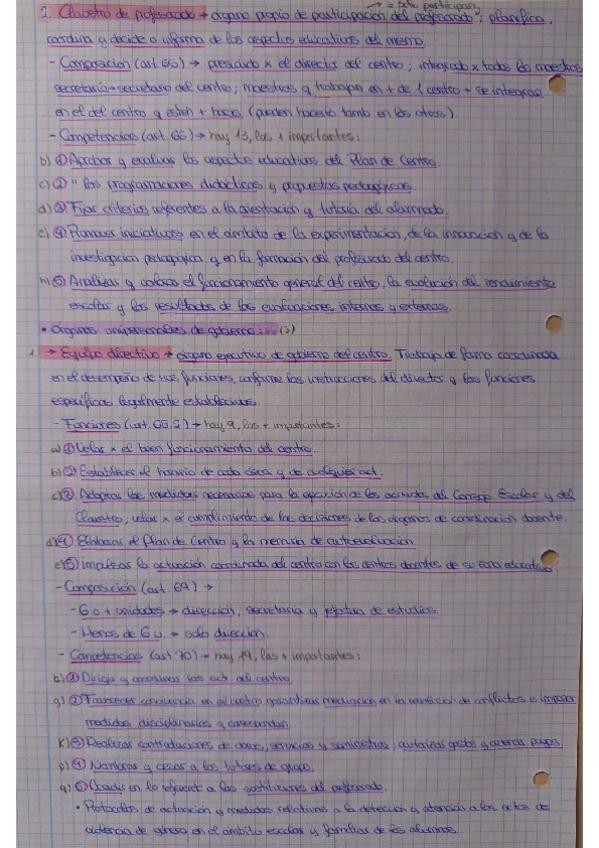 → = bte participan
1. Claustro de profesorado → órgano propio de participación del profesorado; planifica,
coordina y decide o informa de los aspectos educativos del mismo.
- Composición (art. 65) → presidido x el director del centro; integrado x todos los maestros
secretaría → secretario del centro; maestros q trabajan en + de 1 centro → se integran
en el del centro q estén + horas (pueden hacerlo tamb en los otros).
- Competencias (art. 66) → hay 13, las + importantes:
b) ① Aprobar y evaluar los aspectos educativos del Plan de Centro.
c) ② " las programaciones didácticas y propuestas pedagógicas
d) ③ Fijar criterios referentes a la orientación y tutoría del alumnado.
e) ④ Promover iniciativas en el ámbito de la experimentación, de la innovación y de la
investigación pedagógica y en la formación del profesorado del centro.
h) ⑤ Analizar y valorar el funcionamiento general del centro, la evolución del rendimiento
escolar y los resultados de las evaluaciones internas y externas.
• Órganos unipersonales de gobierno: (3)
1. → Equipo directivo → órgano ejecutivo de gobierno del centro. Trabaja de forma coordinada
en el desempeño de sus funciones, conforme las instrucciones del director y las funciones
específicas legalmente establecidas.
- Funciones (art. 68.2) → hay 9, las + importantes:
a) ① Velar x el buen funcionamiento del centro.
b) ② Establecer el horario de cada área y de cualquier act.
c) ③ Adoptar las medidas necesarias para la ejecución de los acuerdos del Consejo Escolar y del
Claustro; velar x el cumplimiento de las decisiones de los órganos de coordinación docente.
d) ④ Elaborar el Plan de Centro y la memoria de autoevaluación
e) ⑤ Impulsar la actuación coordinada del centro con los centros docentes de su zona educativa.
- Composición (art. 69) →
- 6 o + unidades → dirección, secretaría y jefatura de estudios.
- Menos de 6 u. → solo dirección
- Competencias (art. 70) → hay 19, las + importantes:
b) ① Dirigir y coordinar las act. del centro
g) ② Favorecer convivencia en el centro, garantizar mediación en la resolución de conflictos e imponer
medidas disciplinarias q correspondan
k) ③ Realizar contrataciones de obras, servicios y suministros; autorizar gastos y ordenar pagos
p) ④ Nombrar y cesar a los tutores de grupo.
q) ⑤ Decidir en lo referente a las sustituciones del profesorado.
• Protocolos de actuación y medidas relativas a la detección y atención a los actos de
violencia de género en el ámbito escolar y familias de los alumnos.